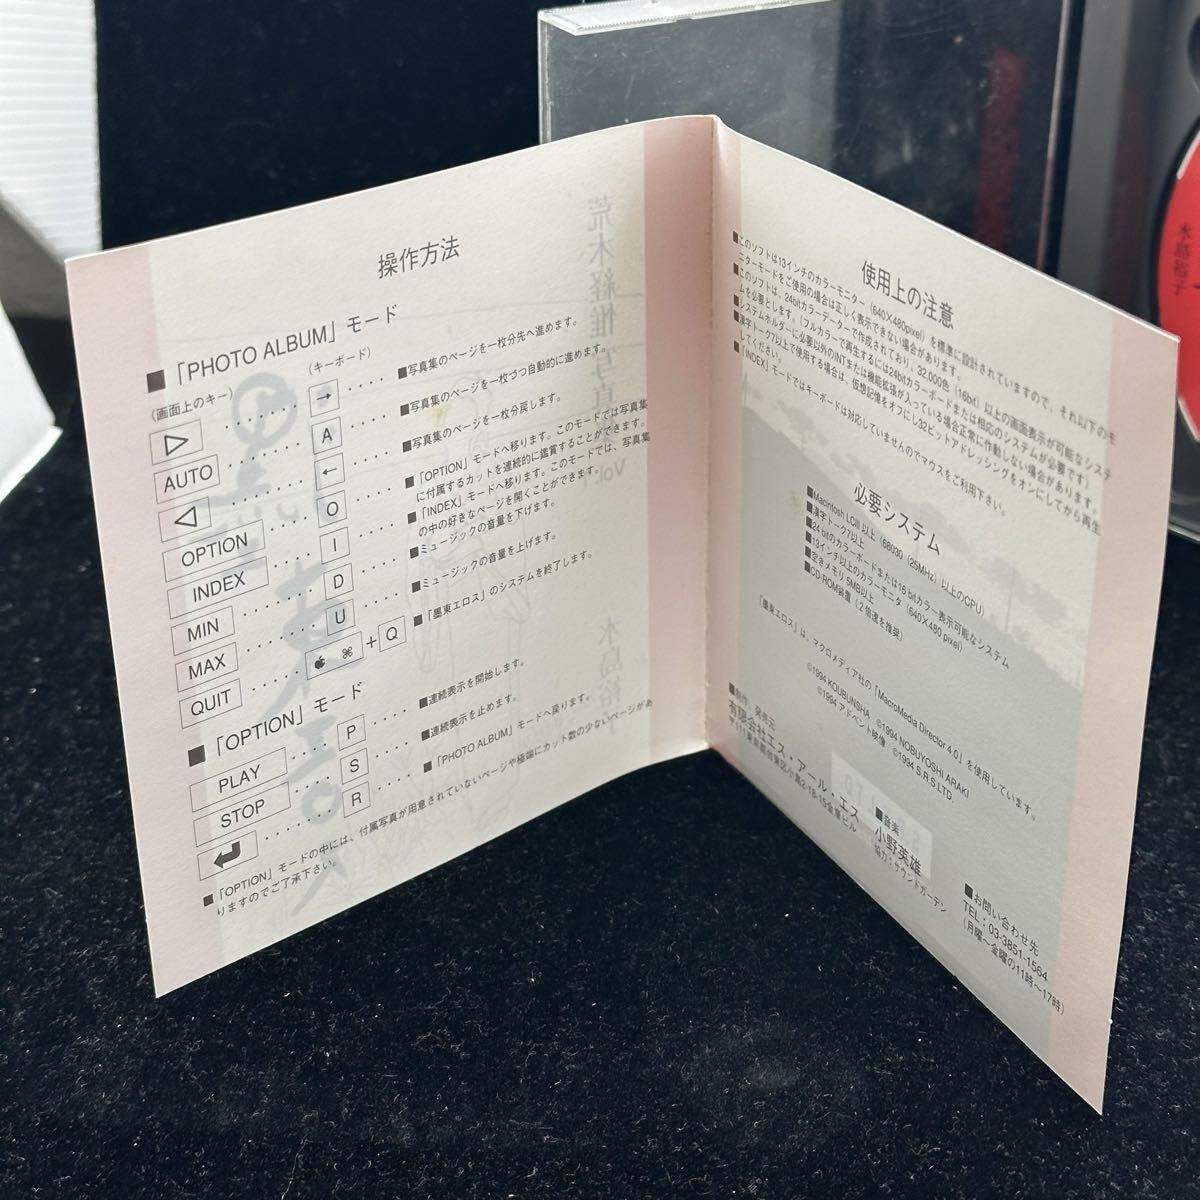 操作方法
■「PHOTO ALBUM」モード
(画面上のキー) (キーボード)
▷ ····· → ····· ■写真集のページを一枚分先へ進めます。
AUTO ····· A ····· ■写真集のページを一枚づつ自動的に進めます。
◁ ····· ← ····· ■写真集のページを一枚分戻します。
OPTION ····· O ····· ■「OPTION」モードへ移ります。このモードでは写真集
に付属するカットを連続的に鑑賞することができます。
INDEX ····· I ····· ■「INDEX」モードへ移ります。このモードでは、写真集
の中の好きなページを開くことができます。
MIN ····· D ····· ■ミュージックの音量を下げます。
MAX ····· U ····· ■ミュージックの音量を上げます。
QUIT ····· ⌘ + Q ■「墨東エロス」のシステムを終了します。
■「OPTION」モード
PLAY ····· P ····· ■連続表示を開始します。
STOP ····· S ····· ■連続表示を止めます。
↵ ····· R ····· ■「PHOTO ALBUM」モードへ戻ります。
■「OPTION」モードの中には、付属写真が用意されていないページや極端にカット数の少ないページがあ
りますのでご了承下さい。
使用上の注意
■このソフトは13インチのカラーモニター(640×480pixel)を標準に設計されていますので、それ以下のモ
ニターモードをご使用の場合は正しく表示できない場合があります。
■このソフトは、24bitカラーデーターで作成されており、32,000色(16bit)以上の画面表示が可能なシステ
ムを必要とします。(フルカラーで再生するには24bitカラーボードまたは相応のシステムが必要です)
■システムホルダーに必要以外のINTまたは機能拡張が入っている場合正常に作動しない場合があります。
■漢字トーク7以上で使用する場合は、仮想記憶をオフにし32ビットアドレッシングをオンにしてから再生
してください。
■「INDEX」モードではキーボードは対応していませんのでマウスをご利用下さい。
必要システム
■Macintosh LCIII 以上(68030(25MHz)以上のCPU)
■漢字トーク7以上
■24 bitのカラーボードまたは16 bitカラー表示可能なシステム
■13インチ以上のカラーモニタ(640×480 pixel)
■空きメモリ5MB以上
■CD-ROM装置(2倍速を推奨)
「墨東エロス」は、マクロメディア社の「MacroMedia Director 4.0」を使用しています。
©1994 KOUBUNSHA ©1994 NOBUYOSHI ARAKI
©1994 アドベント映像 ©1994 S.R.S LTD.
■制作 発売元
有限会社エス・アール・エス
〒111東京都台東区小島2-18-15金章ビル
■音楽
小野英雄
協力:サウンドガーデン
■お問い合わせ先
TEL:03-3851-1564
(月曜〜金曜の11時〜17時)
水島裕子